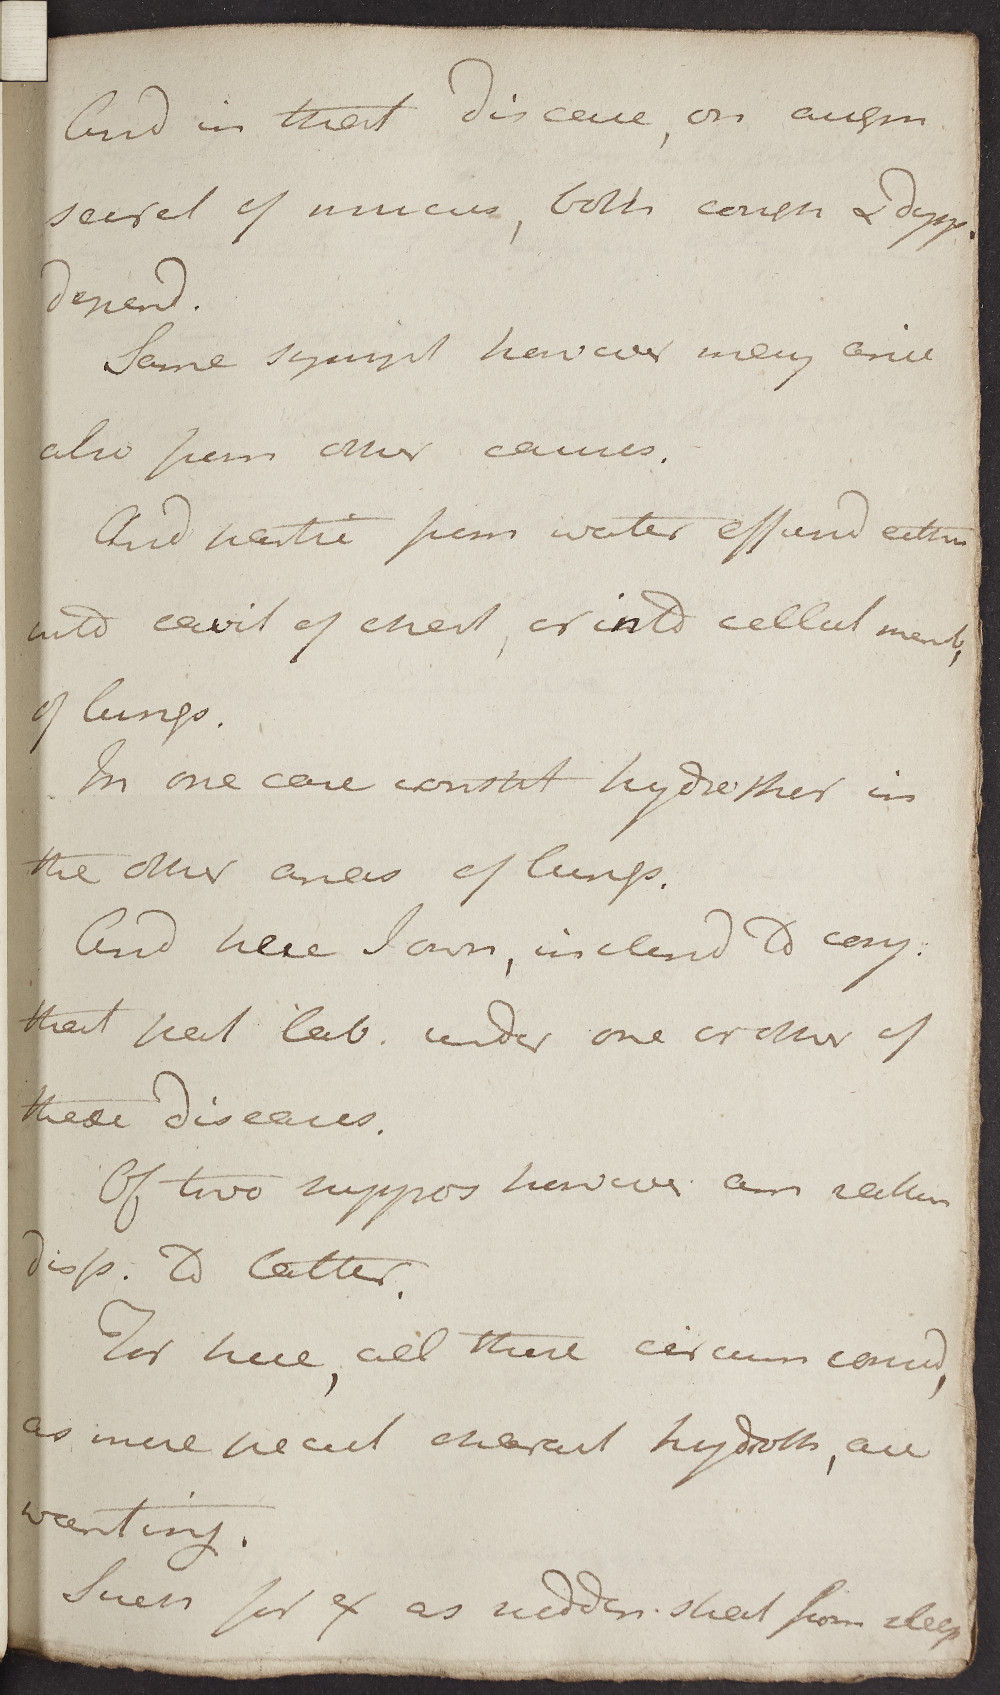 And in that disease, on augm
secret of mucus, both cough & dysp.
depend.
Same sympt however may arise
also from other causes.
And partic from water effused either
into cavit of chest, or into cellul memb,
of lungs.
In one case constit hydrothor in
the other anas of lungs.
And here I own, inclined to conj.
that pat lab. under one or other of
these diseases.
Of two suppos however am rather
disp. to latter.
For here, all those circum consid,
as more pecul charact hydroth, are
wanting.
Such for ex as sudden start from sleep